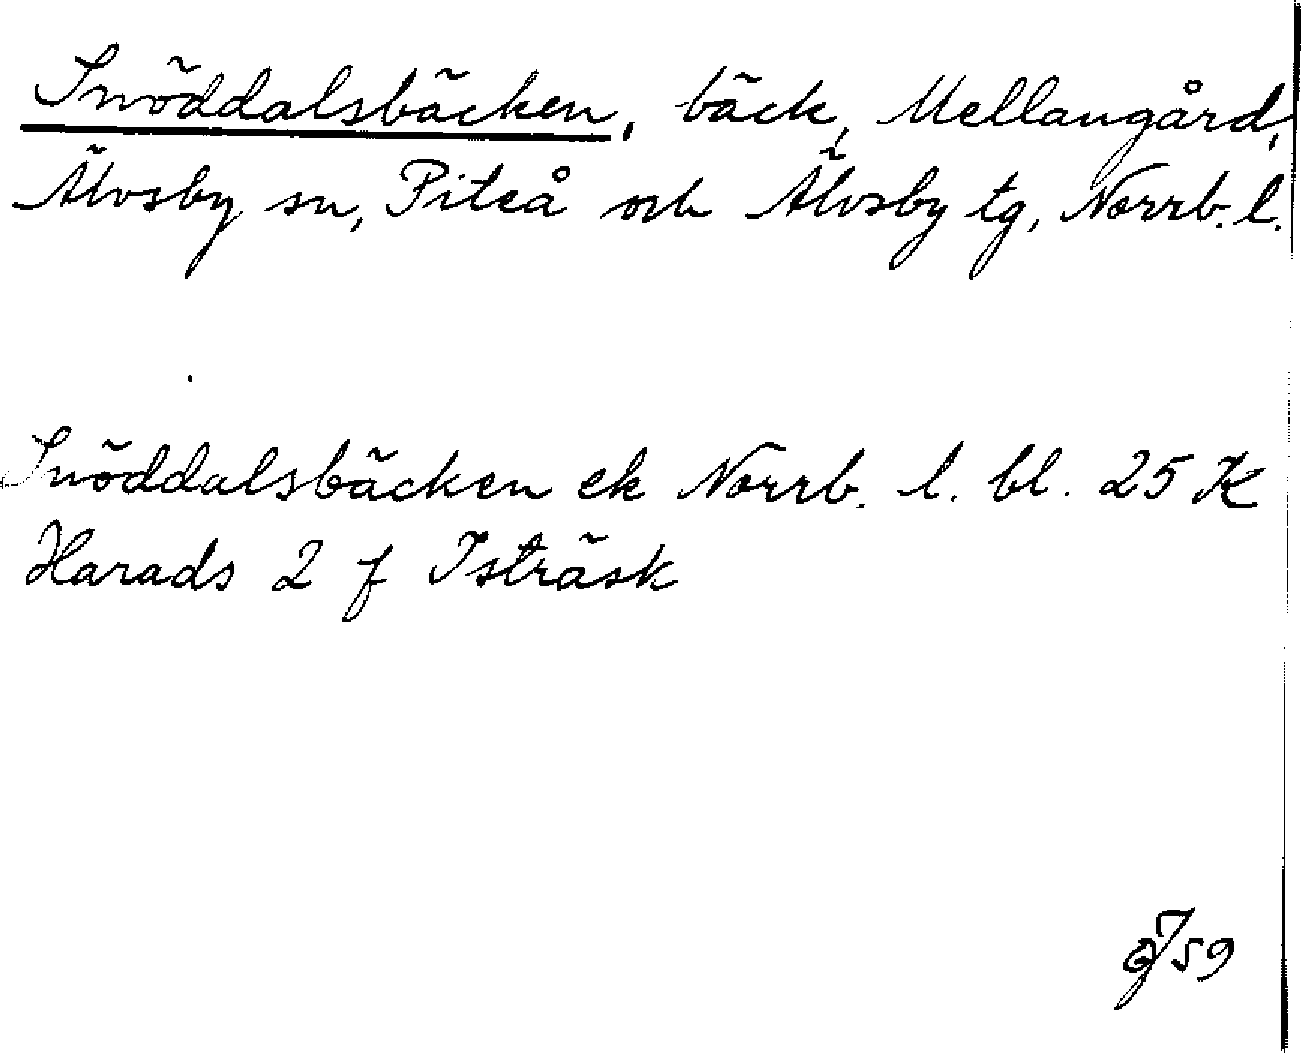 Snöddalsbäcken, bäck, Mellangård,
Älvsby sn, Piteå och Älvsby tg, Norrb. l.
Snöddalsbäcken ek Norrb. l. bl. 25 K
Harads 2 f Isträsk
59